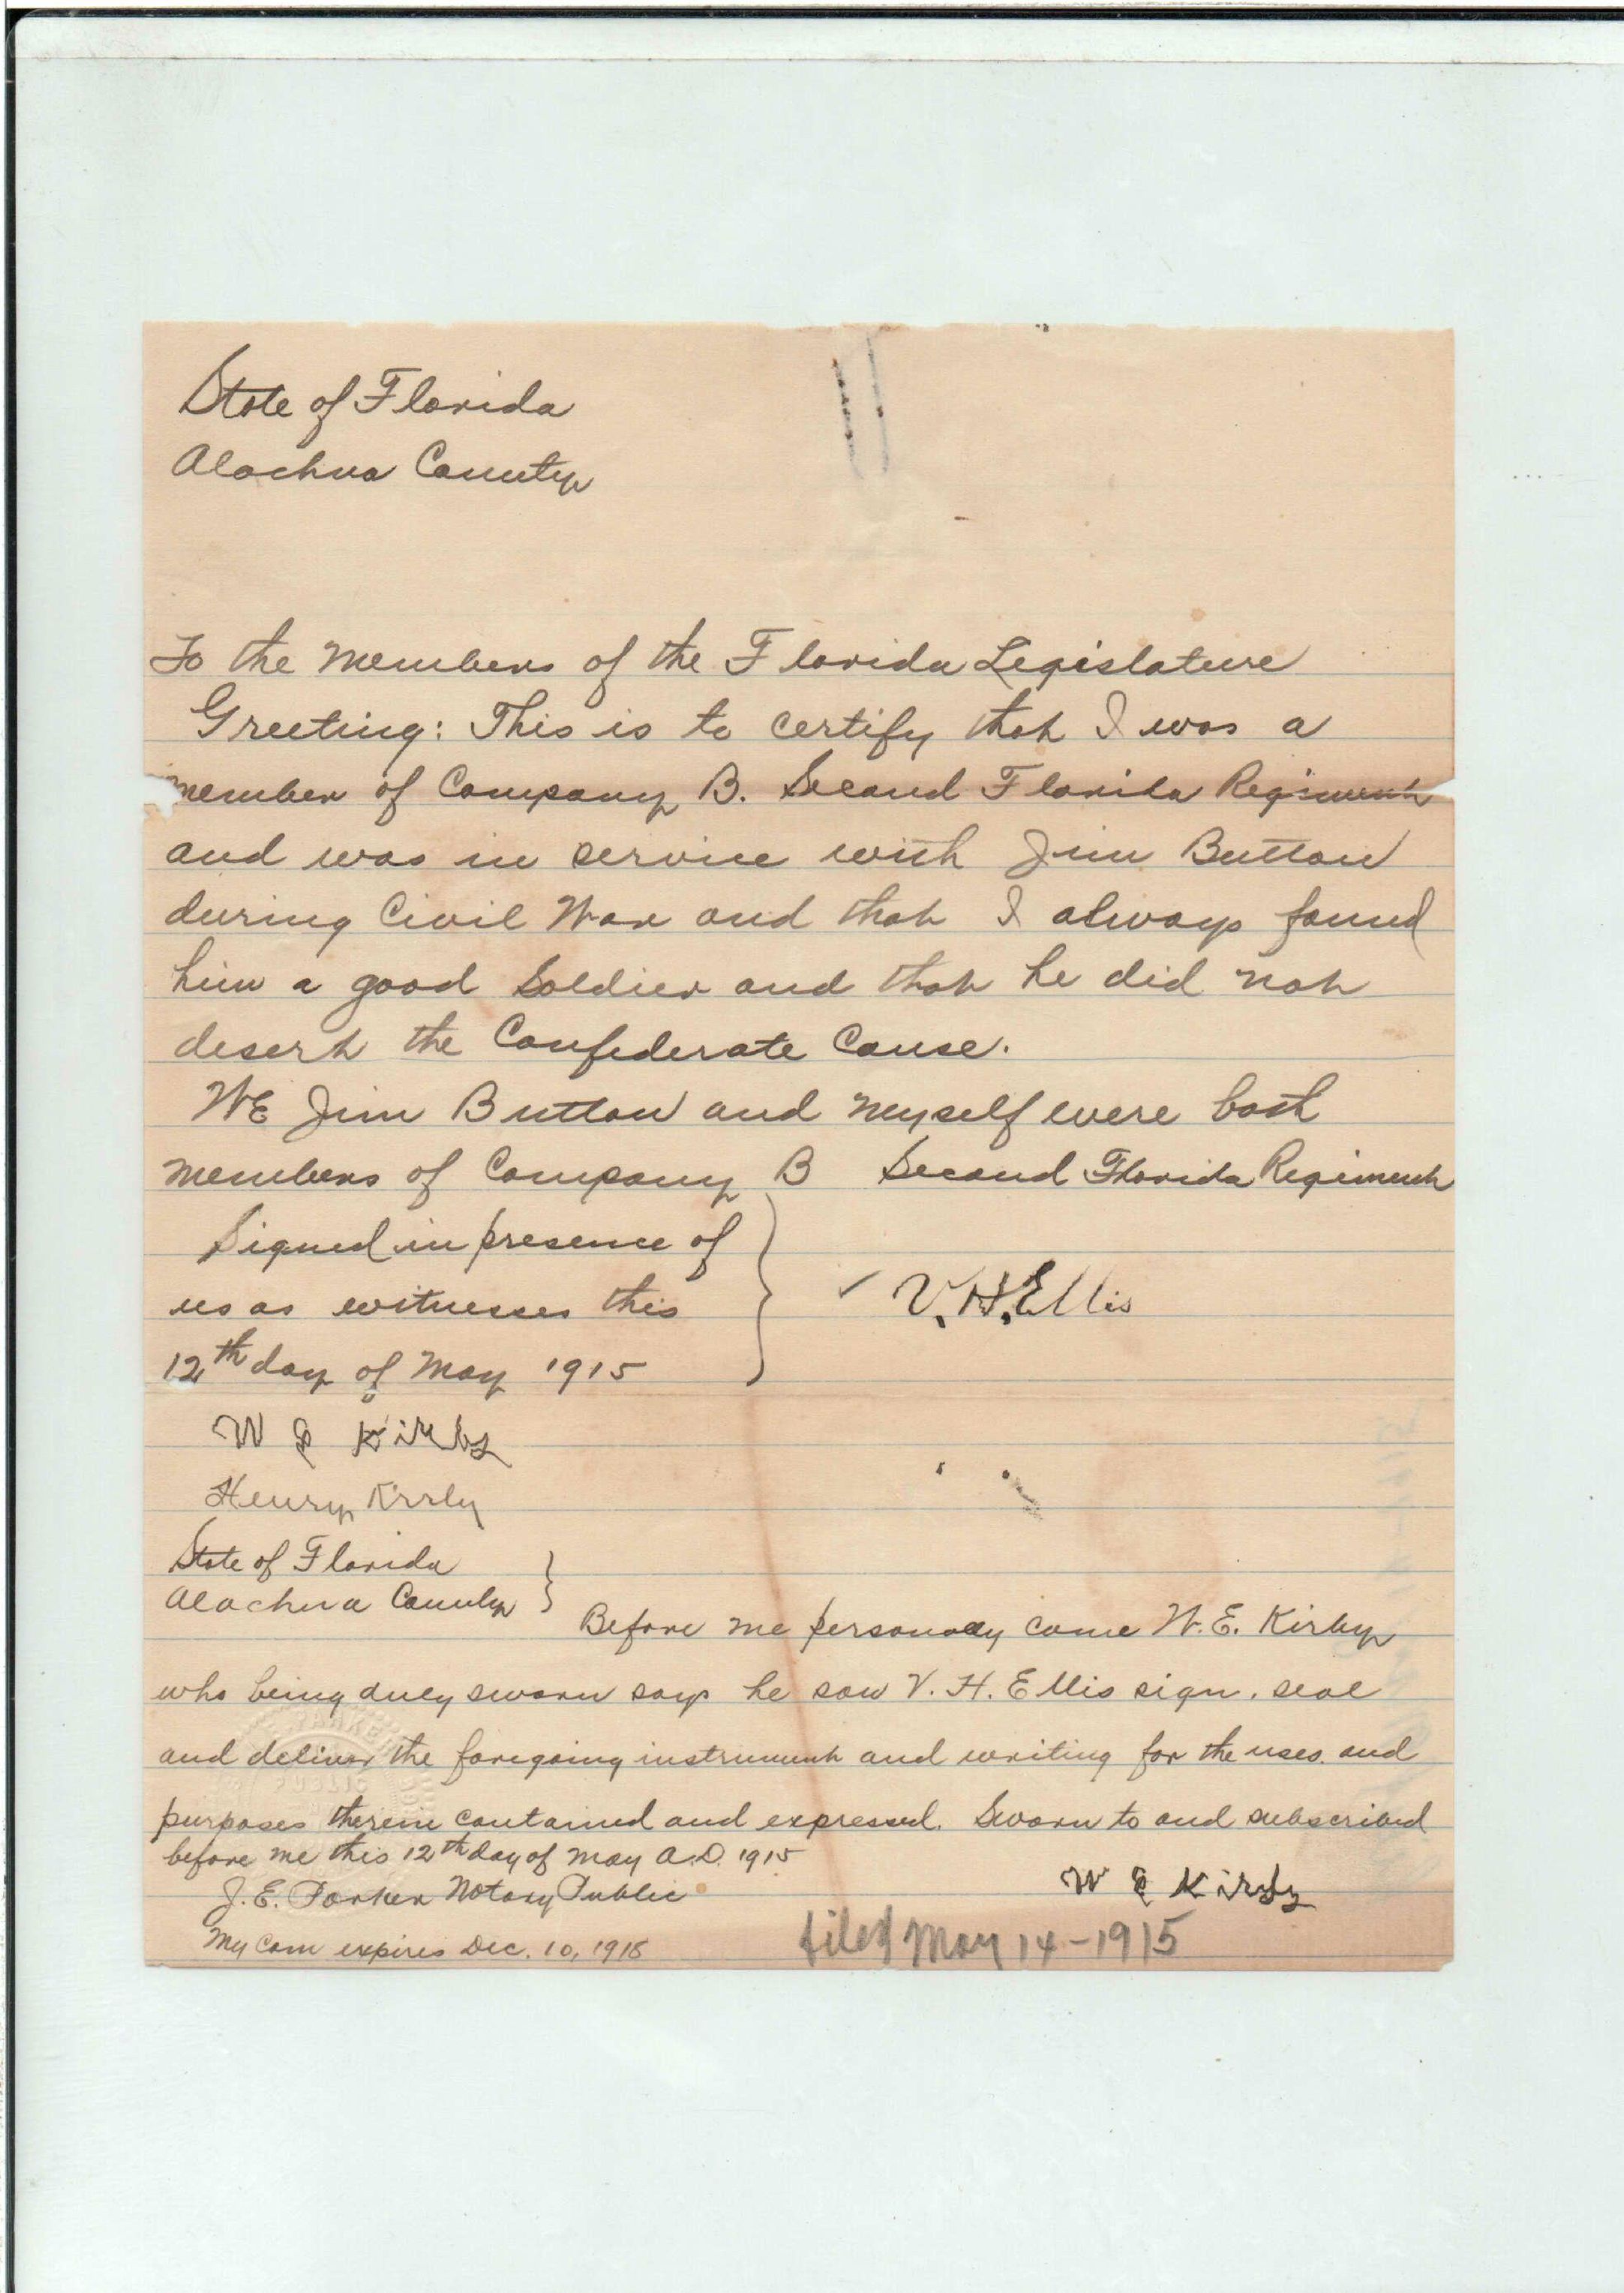 State of Florida
Alachua County
To the Members of the Florida Legislature
Greeting: This is to certify that I was a
member of Company B. Second Florida Regiment
and was in service with Jim Button
during Civil War and that I always found
him a good Soldier and that he did not
desert the Confederate Cause.
WE Jim Button and myself were both
members of Company B Second Florida Regiment
Signed in presence of
us as witnesses this
12th day of May 1915
V. H. Ellis
W E Kirby
Henry Kirby
State of Florida
Alachua County
Before me personally came W. E. Kirby
who being duly sworn says he saw V. H. Ellis sign, seal
and deliver the foregoing instrument and writing for the uses and
purposes therein contained and expressed. Sworn to and subscribed
before me this 12th day of May A.D. 1915
W E Kirby
J. E. Parker Notary Public
My Com expires Dec. 10, 1918
filed May 14-1915